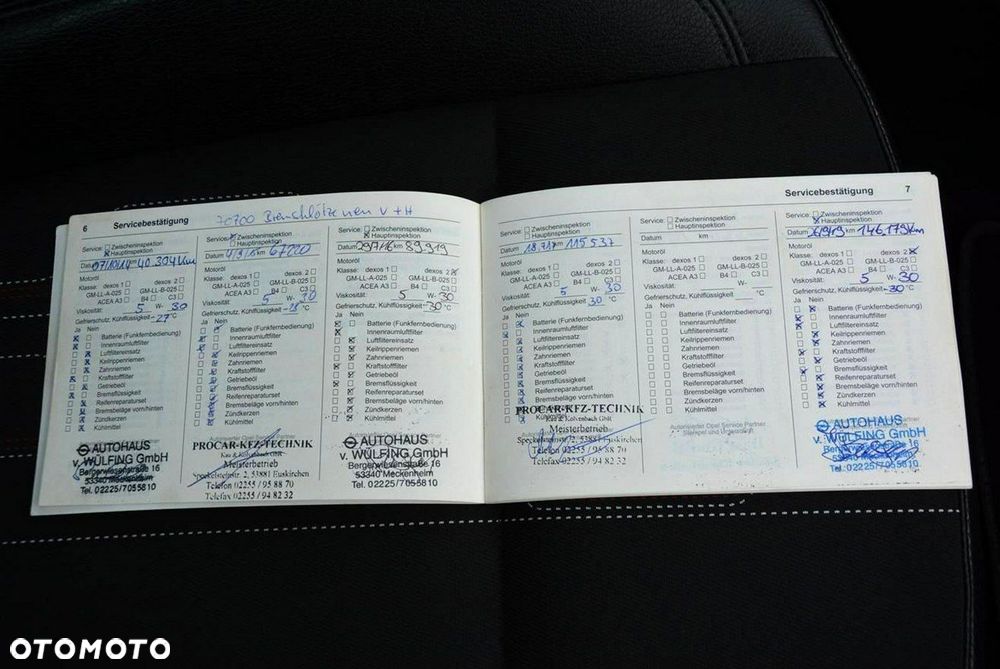 6
Servicebestätigung
70700
V + H
Service: Zwischeninspektion
Hauptinspektion
Datum 07/10/14 km 40.304 km
Motoröl
Klasse: dexos 1 dexos 2
GM-LL-A-025 GM-LL-B-025
ACEA A3 B4 C3
Viskosität: 5 W- 30
Gefrierschutz, Kühlflüssigkeit -27 °C
Ja Nein
Batterie (Funkfernbedienung)
Innenraumluftfilter
Luftfiltereinsatz
Keilrippenriemen
Zahnriemen
Kraftstofffilter
Getriebeöl
Bremsflüssigkeit
Reifenreparaturset
Bremsbeläge vorn/hinten
Zündkerzen
Kühlmittel
AUTOHAUS
v. WÜLFING GmbH
Bergerwiesenstraße 16
53340 Meckenheim
Tel. 02225/7055810
Service: Zwischeninspektion
Hauptinspektion
Datum km 67000
Motoröl
Klasse: dexos 1 dexos 2
GM-LL-A-025 GM-LL-B-025
ACEA A3 B4 C3
Viskosität: 5 W- 30
Gefrierschutz, Kühlflüssigkeit °C
Ja Nein
Batterie (Funkfernbedienung)
Innenraumluftfilter
Luftfiltereinsatz
Keilrippenriemen
Zahnriemen
Kraftstofffilter
Getriebeöl
Bremsflüssigkeit
Reifenreparaturset
Bremsbeläge vorn/hinten
Zündkerzen
Kühlmittel
PROCAR-KFZ-TECHNIK
Meisterbetrieb
53881 Euskirchen
Telefon 02255 / 95 88 70
Telefax 02255 / 94 82 32
Service: Zwischeninspektion
Hauptinspektion
Datum 29/7/16 km 89919
Motoröl
Klasse: dexos 1 dexos 2
GM-LL-A-025 GM-LL-B-025
ACEA A3 B4 C3
Viskosität: 5 W- 30
Gefrierschutz, Kühlflüssigkeit -30 °C
Ja Nein
Batterie (Funkfernbedienung)
Innenraumluftfilter
Luftfiltereinsatz
Keilrippenriemen
Zahnriemen
Kraftstofffilter
Getriebeöl
Bremsflüssigkeit
Reifenreparaturset
Bremsbeläge vorn/hinten
Zündkerzen
Kühlmittel
AUTOHAUS
v. WÜLFING GmbH
Bergerwiesenstraße 16
53340 Meckenheim
Tel. 02225/7055810
Servicebestätigung
7
Service: Zwischeninspektion
Hauptinspektion
Datum 18.7.17 115537
Motoröl
Klasse: dexos 1 dexos 2
GM-LL-A-025 GM-LL-B-025
ACEA A3 B4 C3
Viskosität: 5 W- 30
Gefrierschutz, Kühlflüssigkeit 30 °C
Ja Nein
Batterie (Funkfernbedienung)
Innenraumluftfilter
Luftfiltereinsatz
Keilrippenriemen
Zahnriemen
Kraftstofffilter
Getriebeöl
Bremsflüssigkeit
Reifenreparaturset
Bremsbeläge vorn/hinten
Zündkerzen
Kühlmittel
PROCAR-KFZ-TECHNIK
Meisterbetrieb
53881 Euskirchen
Telefon 02255 / 95 88 70
Telefax 02255 / 94 82 32
Service: Zwischeninspektion
Hauptinspektion
Datum km
Motoröl
Klasse: dexos 1 dexos 2
GM-LL-A-025 GM-LL-B-025
ACEA A3 B4 C3
Viskosität: W-
Gefrierschutz, Kühlflüssigkeit °C
Ja Nein
Batterie (Funkfernbedienung)
Innenraumluftfilter
Luftfiltereinsatz
Keilrippenriemen
Zahnriemen
Kraftstofffilter
Getriebeöl
Bremsflüssigkeit
Reifenreparaturset
Bremsbeläge vorn/hinten
Zündkerzen
Kühlmittel
Autorisierter Opel Service Partner
Stempel und Unterschrift
Service: Zwischeninspektion
Hauptinspektion
Datum km 146.179 km
Motoröl
Klasse: dexos 1 dexos 2
GM-LL-A-025 GM-LL-B-025
ACEA A3 B4 C3
Viskosität: 5 W- 30
Gefrierschutz, Kühlflüssigkeit -30 °C
Ja Nein
Batterie (Funkfernbedienung)
Innenraumluftfilter
Luftfiltereinsatz
Keilrippenriemen
Zahnriemen
Kraftstofffilter
Getriebeöl
Bremsflüssigkeit
Reifenreparaturset
Bremsbeläge vorn/hinten
Zündkerzen
Kühlmittel
AUTOHAUS
v. WÜLFING GmbH
Tel. 02225/7055810
OTOMOTO